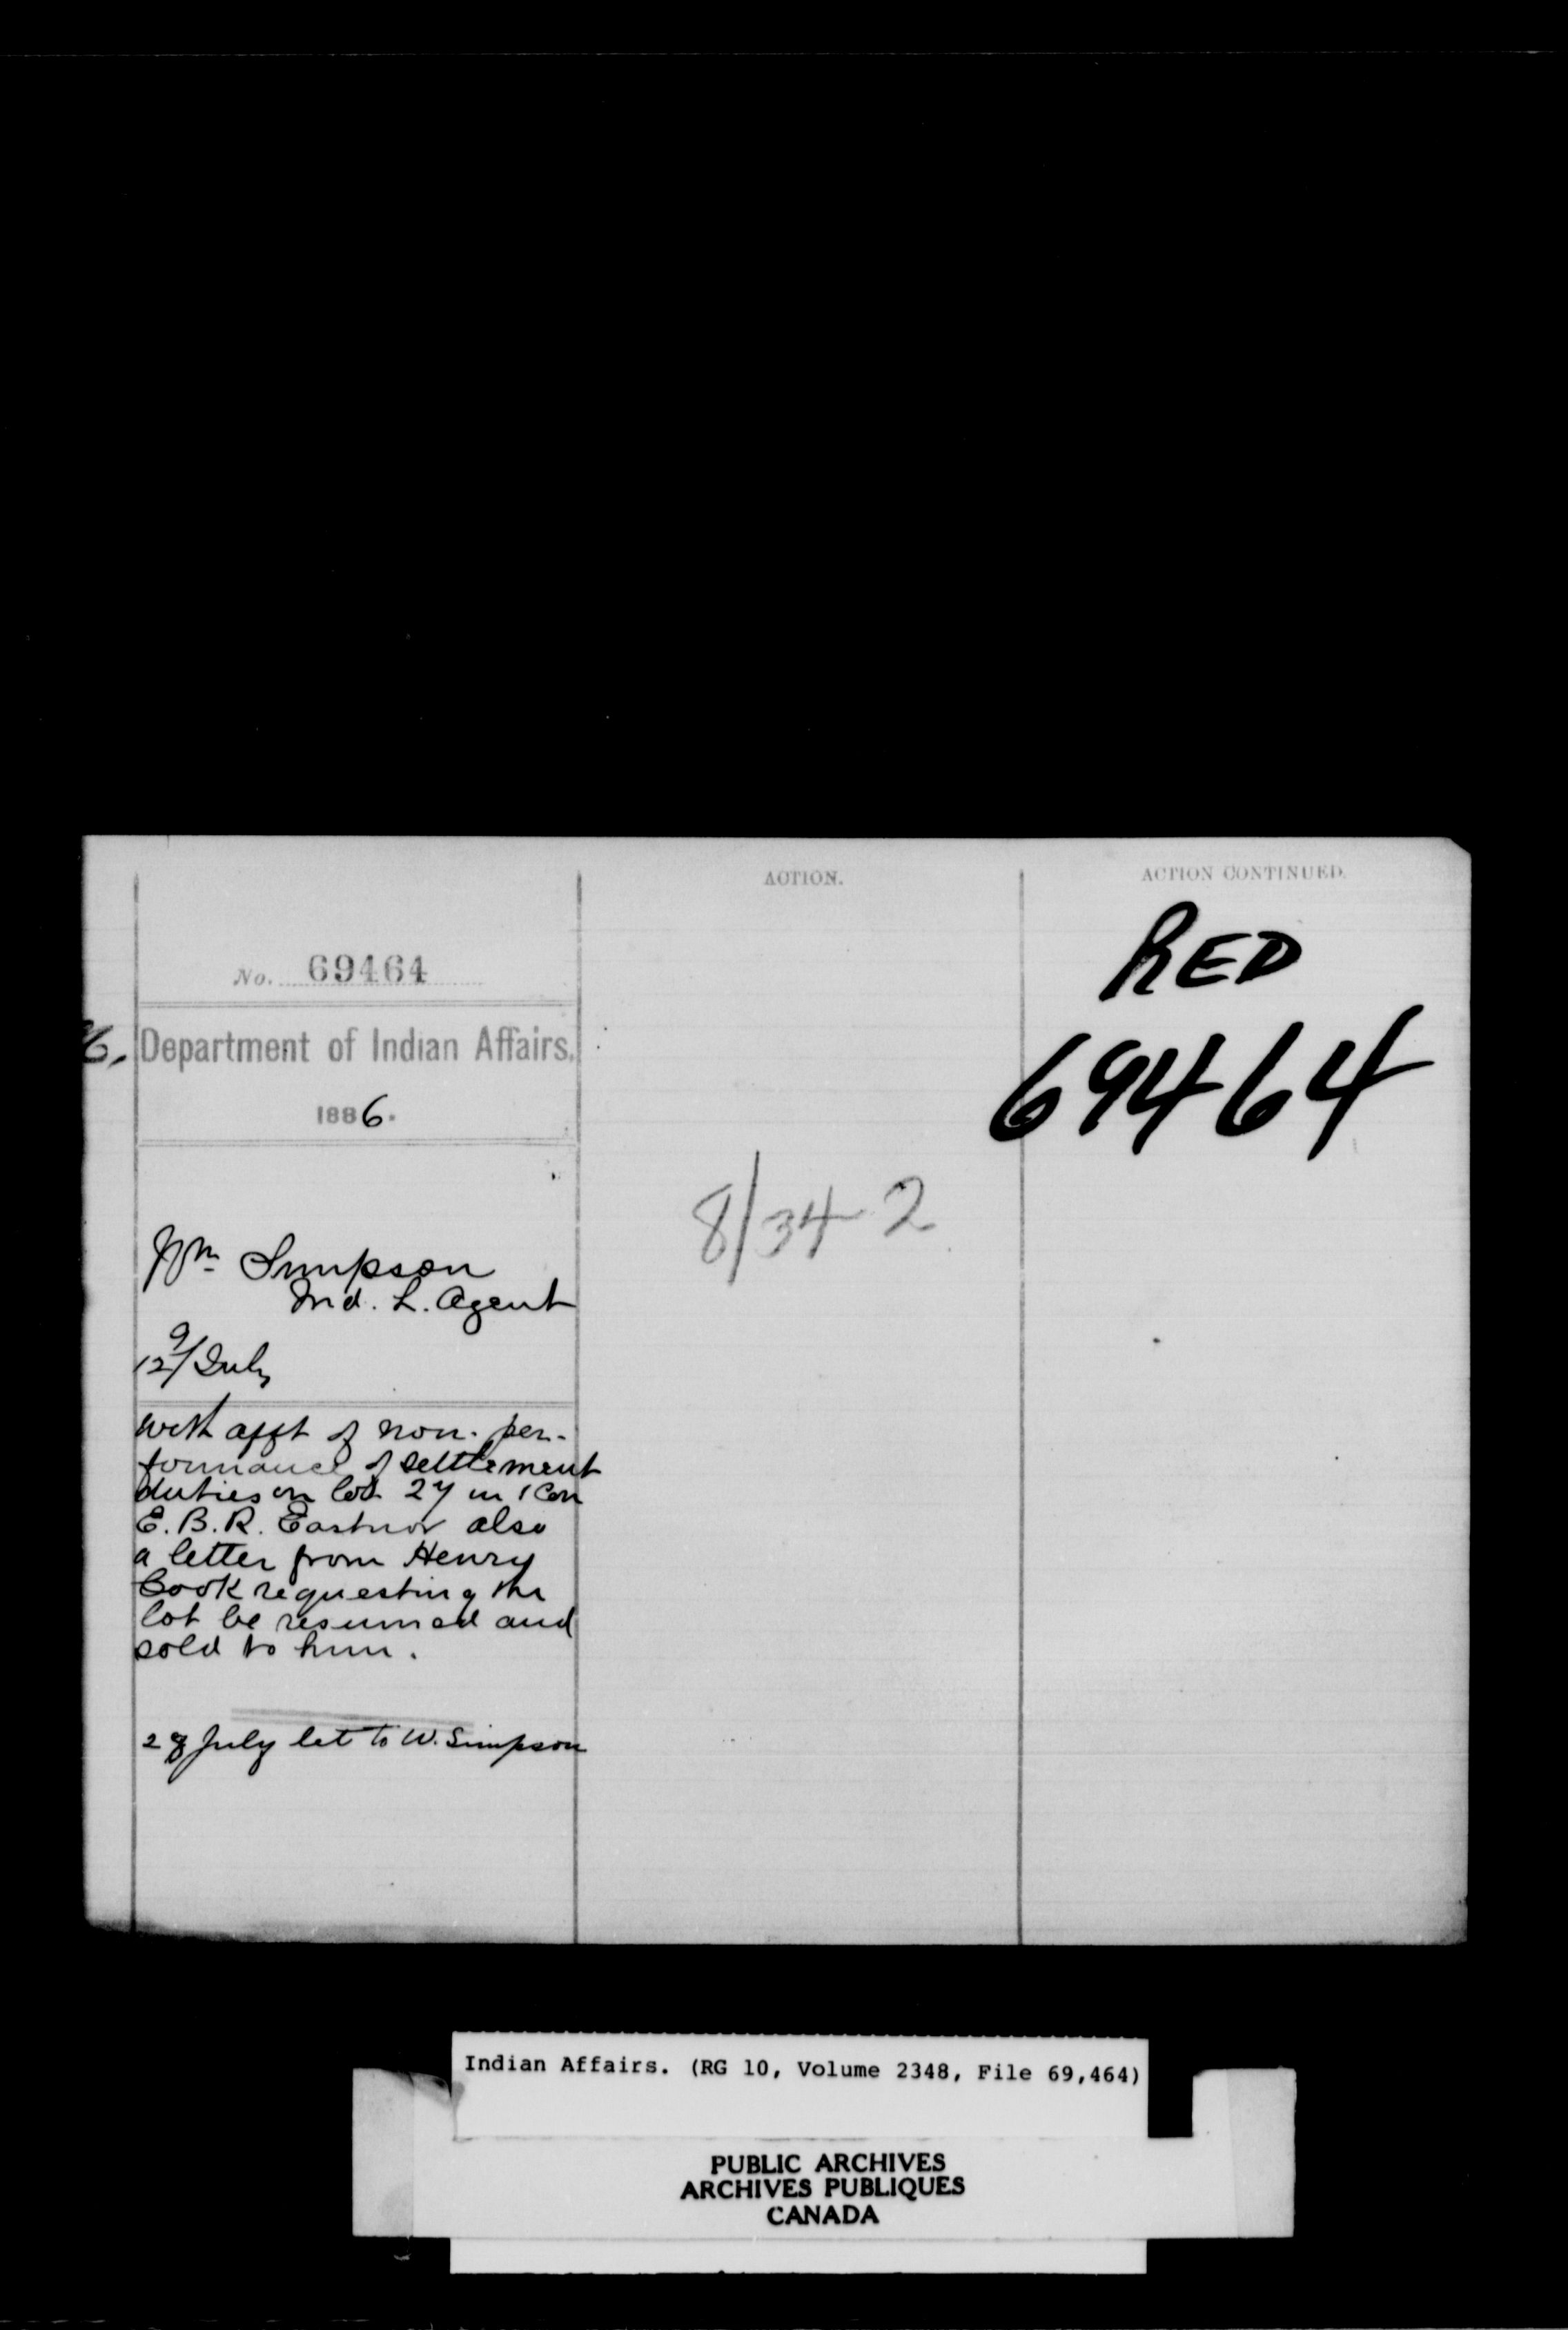 ACTION.
ACTION CONTINUED.
RED
69464
No. 69464
6.
Department of Indian Affairs.
1886.
8/34-2
Wm Simpson
Ind. L. Agent
9/12 July
with afft of non-per-
formance of settlement
duties on lot 27 in 1 Con
E.B.R. Eastnor also
a letter from Henry
Cook requesting the
lot be resumed and
sold to him.
28 July let to W. Simpson
Indian Affairs. (RG 10, Volume 2348, File 69,464)
PUBLIC ARCHIVES
ARCHIVES PUBLIQUES
CANADA